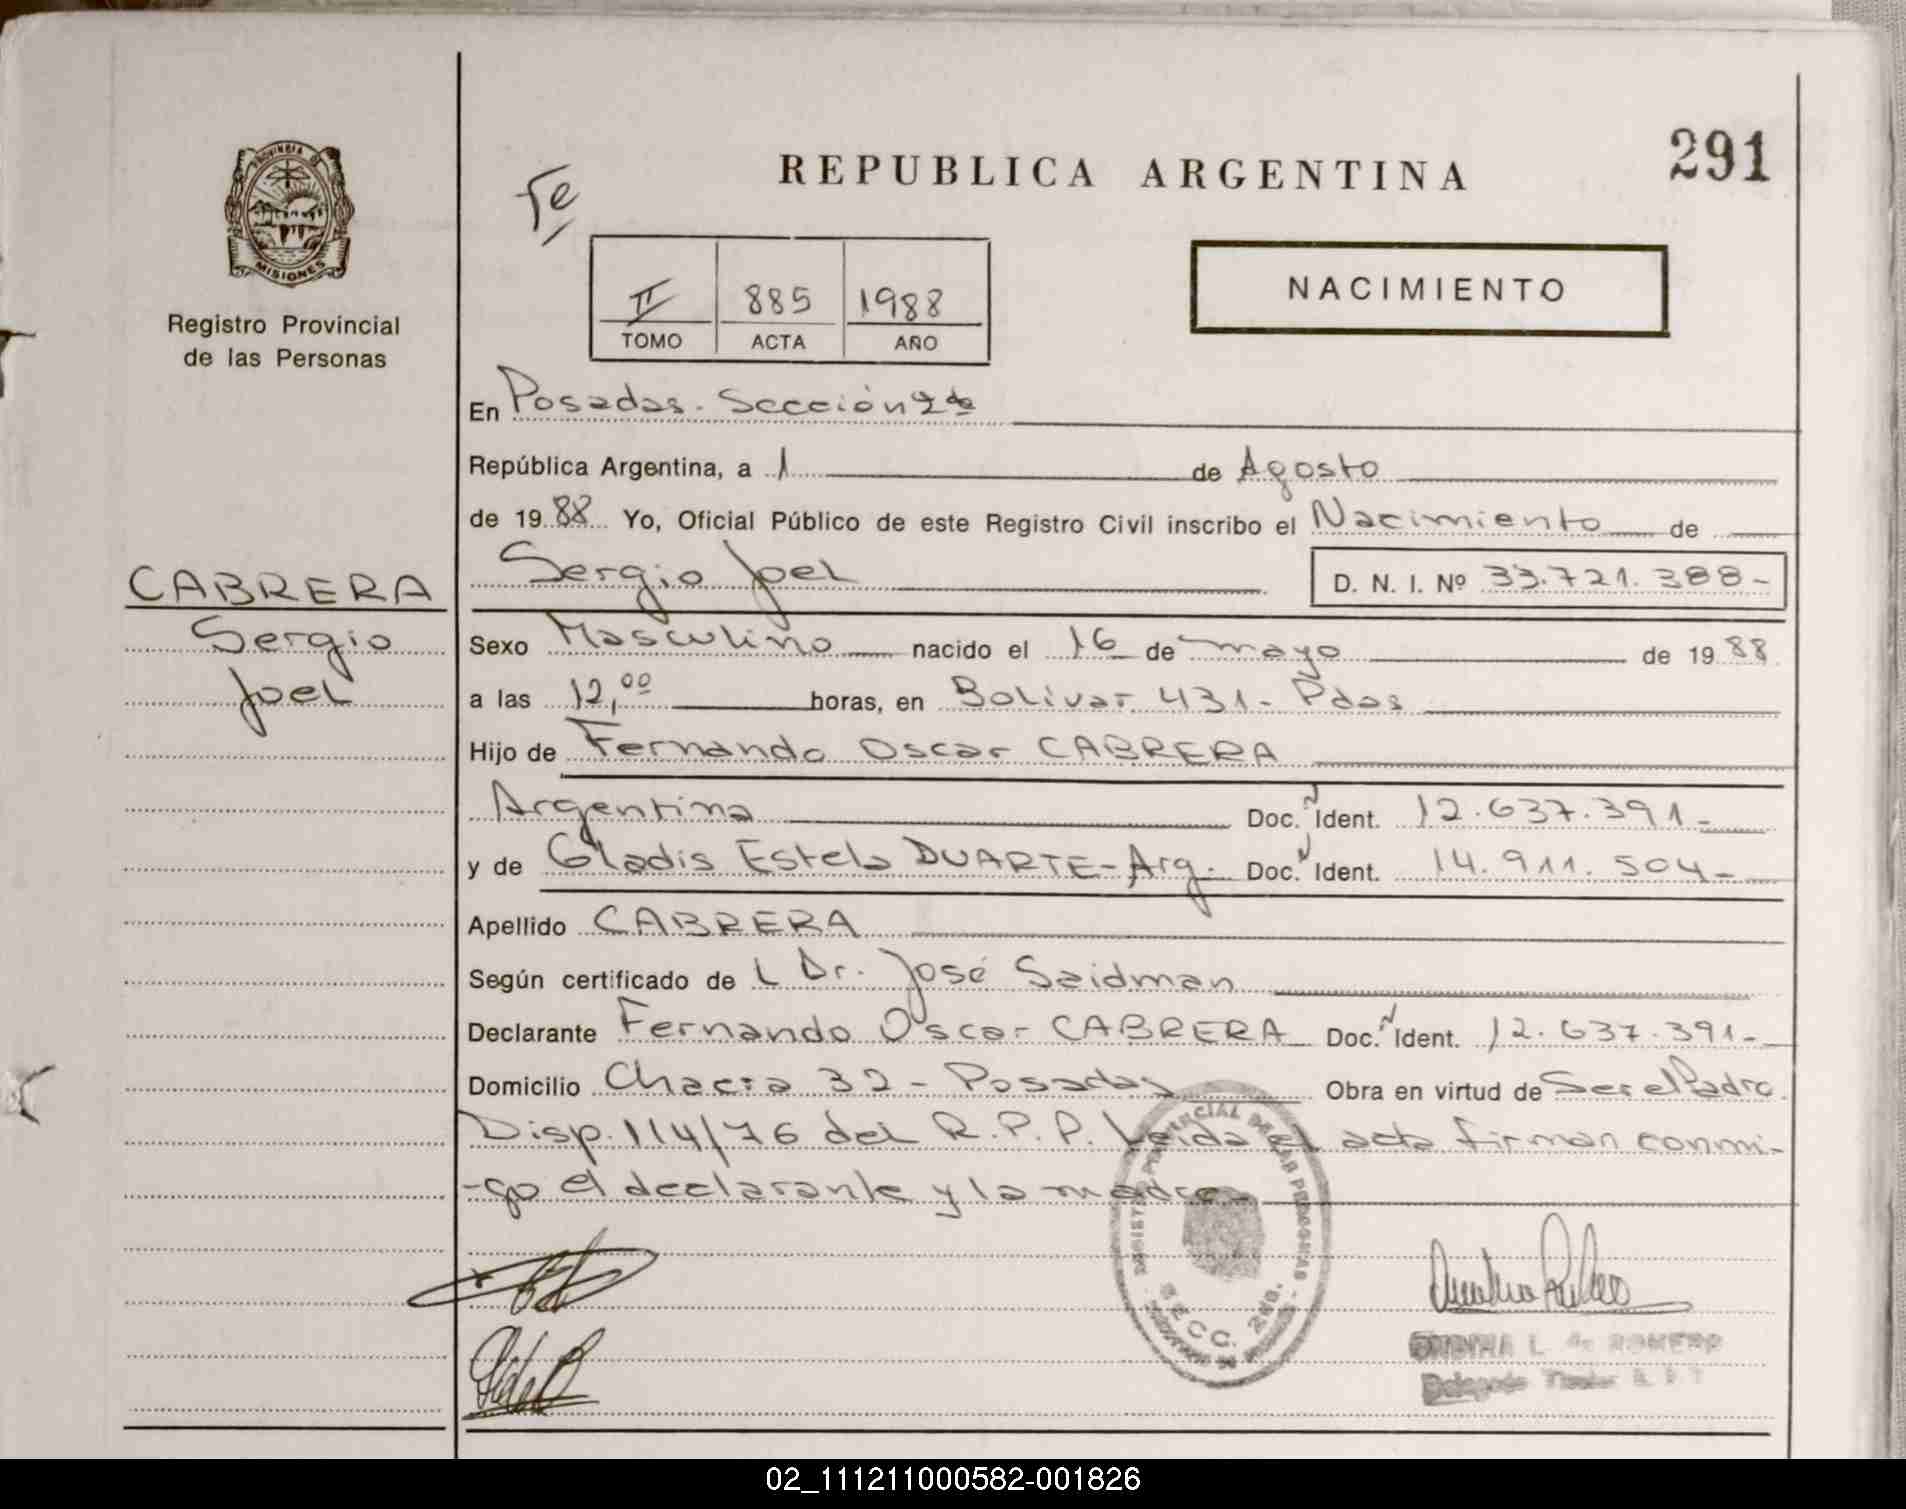 291
REPUBLICA ARGENTINA
PROVINCIA DE
MISIONES
Registro Provincial
de las Personas
NACIMIENTO
II 885 1988
TOMO ACTA AÑO
En Posadas. Sección 2da
República Argentina, a 1 de Agosto
de 1988 Yo, Oficial Público de este Registro Civil inscribo el Nacimiento de
Sergio Joel D. N. I. Nº 33.721.388-
CABRERA
Sergio
Joel
Sexo Masculino nacido el 16 de mayo de 1988
a las 12,00 horas, en Bolívar 431- Pdas
Hijo de Fernando Oscar CABRERA
Argentina Doc. N Ident. 12.637.391-
y de Gladis Estela DUARTE-Arg. Doc. N Ident. 14.911.504-
Apellido CABRERA
Según certificado de L Dr. José Saidman
Declarante Fernando Oscar CABRERA Doc. N Ident. 12.637.391-
Domicilio Chacra 32 - Posadas Obra en virtud de Ser el Padre
Disp. 114/76 del R.P.P. Leída el acta firman conmi-
-go el declarante y la madre-
SECC. 2da.
L. de ROMERO
02_111211000582-001826